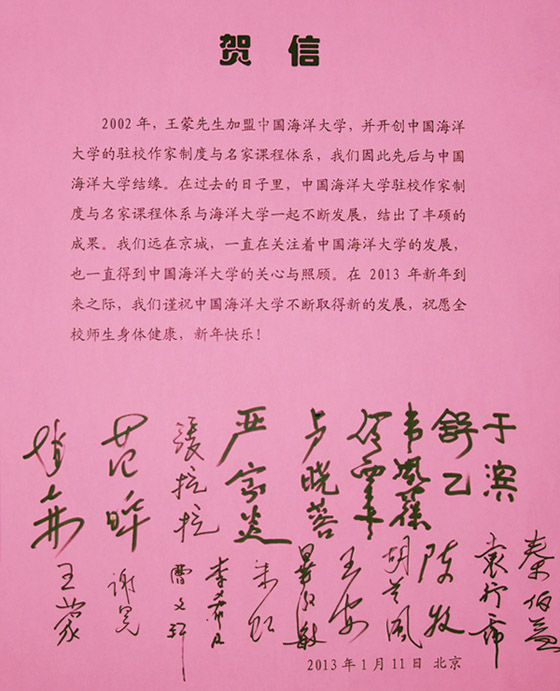 贺信
2002 年，王蒙先生加盟中国海洋大学，并开创中国海洋
大学的驻校作家制度与名家课程体系，我们因此先后与中国
海洋大学结缘。在过去的日子里，中国海洋大学驻校作家制
度与名家课程体系与海洋大学一起不断发展，结出了丰硕的
成果。我们远在京城，一直在关注着中国海洋大学的发展，
也一直得到中国海洋大学的关心与照顾。在 2013 年新年到
来之际，我们谨祝中国海洋大学不断取得新的发展，祝愿全
校师生身体健康，新年快乐！
于滨
舒乙
韦凤葆
卢晓蓉
严家炎
張抗抗
范晔
秦伯益
袁行霈
陈牧
王安
朱虹
曹文轩
谢冕
王蒙
2013 年 1 月 11 日 北京